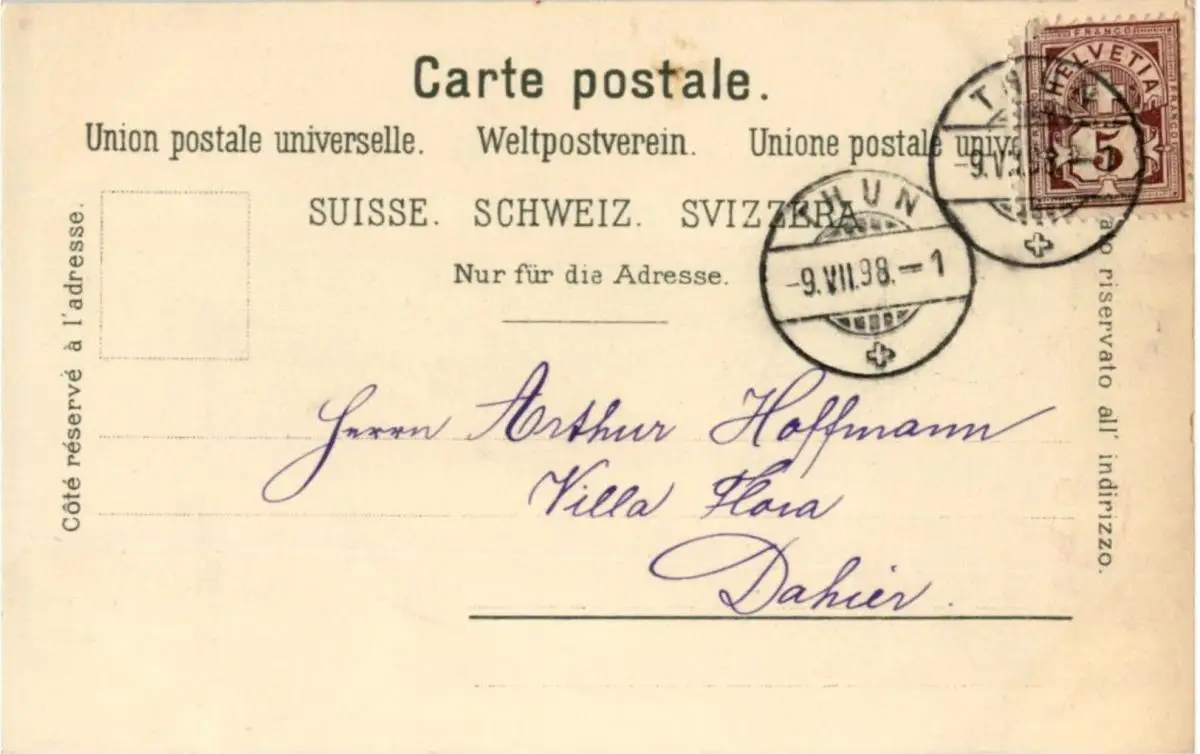 Carte postale.
Union postale universelle. Weltpostverein. Unione postale unive
SUISSE. SCHWEIZ. SVIZZERA
Nur für die Adresse.
Côté réservé à l'adresse.
lato riservato all' indirizzo.
FRANCO
HELVETIA
FRANCO
5
THUN
-9.VII.98.-1
-9.V
Herrn Arthur Hoffmann
Villa Flora
Dahier.